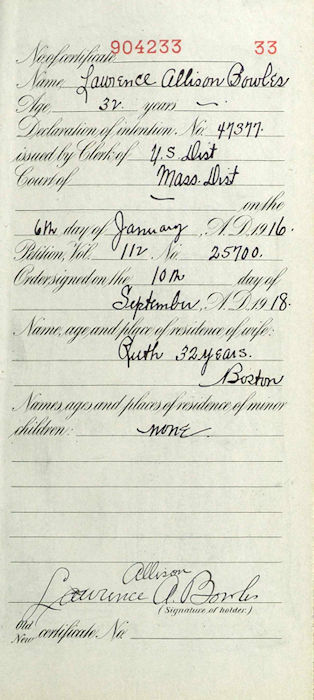 No. of certificate 904233 33
Name, Lawrence Allison Bowles
Age, 32 years —
Declaration of intention. No. 47377.
issued by Clerk of U.S Dist
Court of Mass. Dist
— on the
6th day of January, A.D. 1916.
Petition, Vol. 112 No. 25700.
Order signed on the 10th day of
September, A.D. 1918.
Name, age and place of residence of wife:
Ruth 32 years.
Boston
Names, ages and places of residence of minor
children: none.
Allison
Lawrence A. Bowles
(Signature of holder.)
Old
New certificate No.